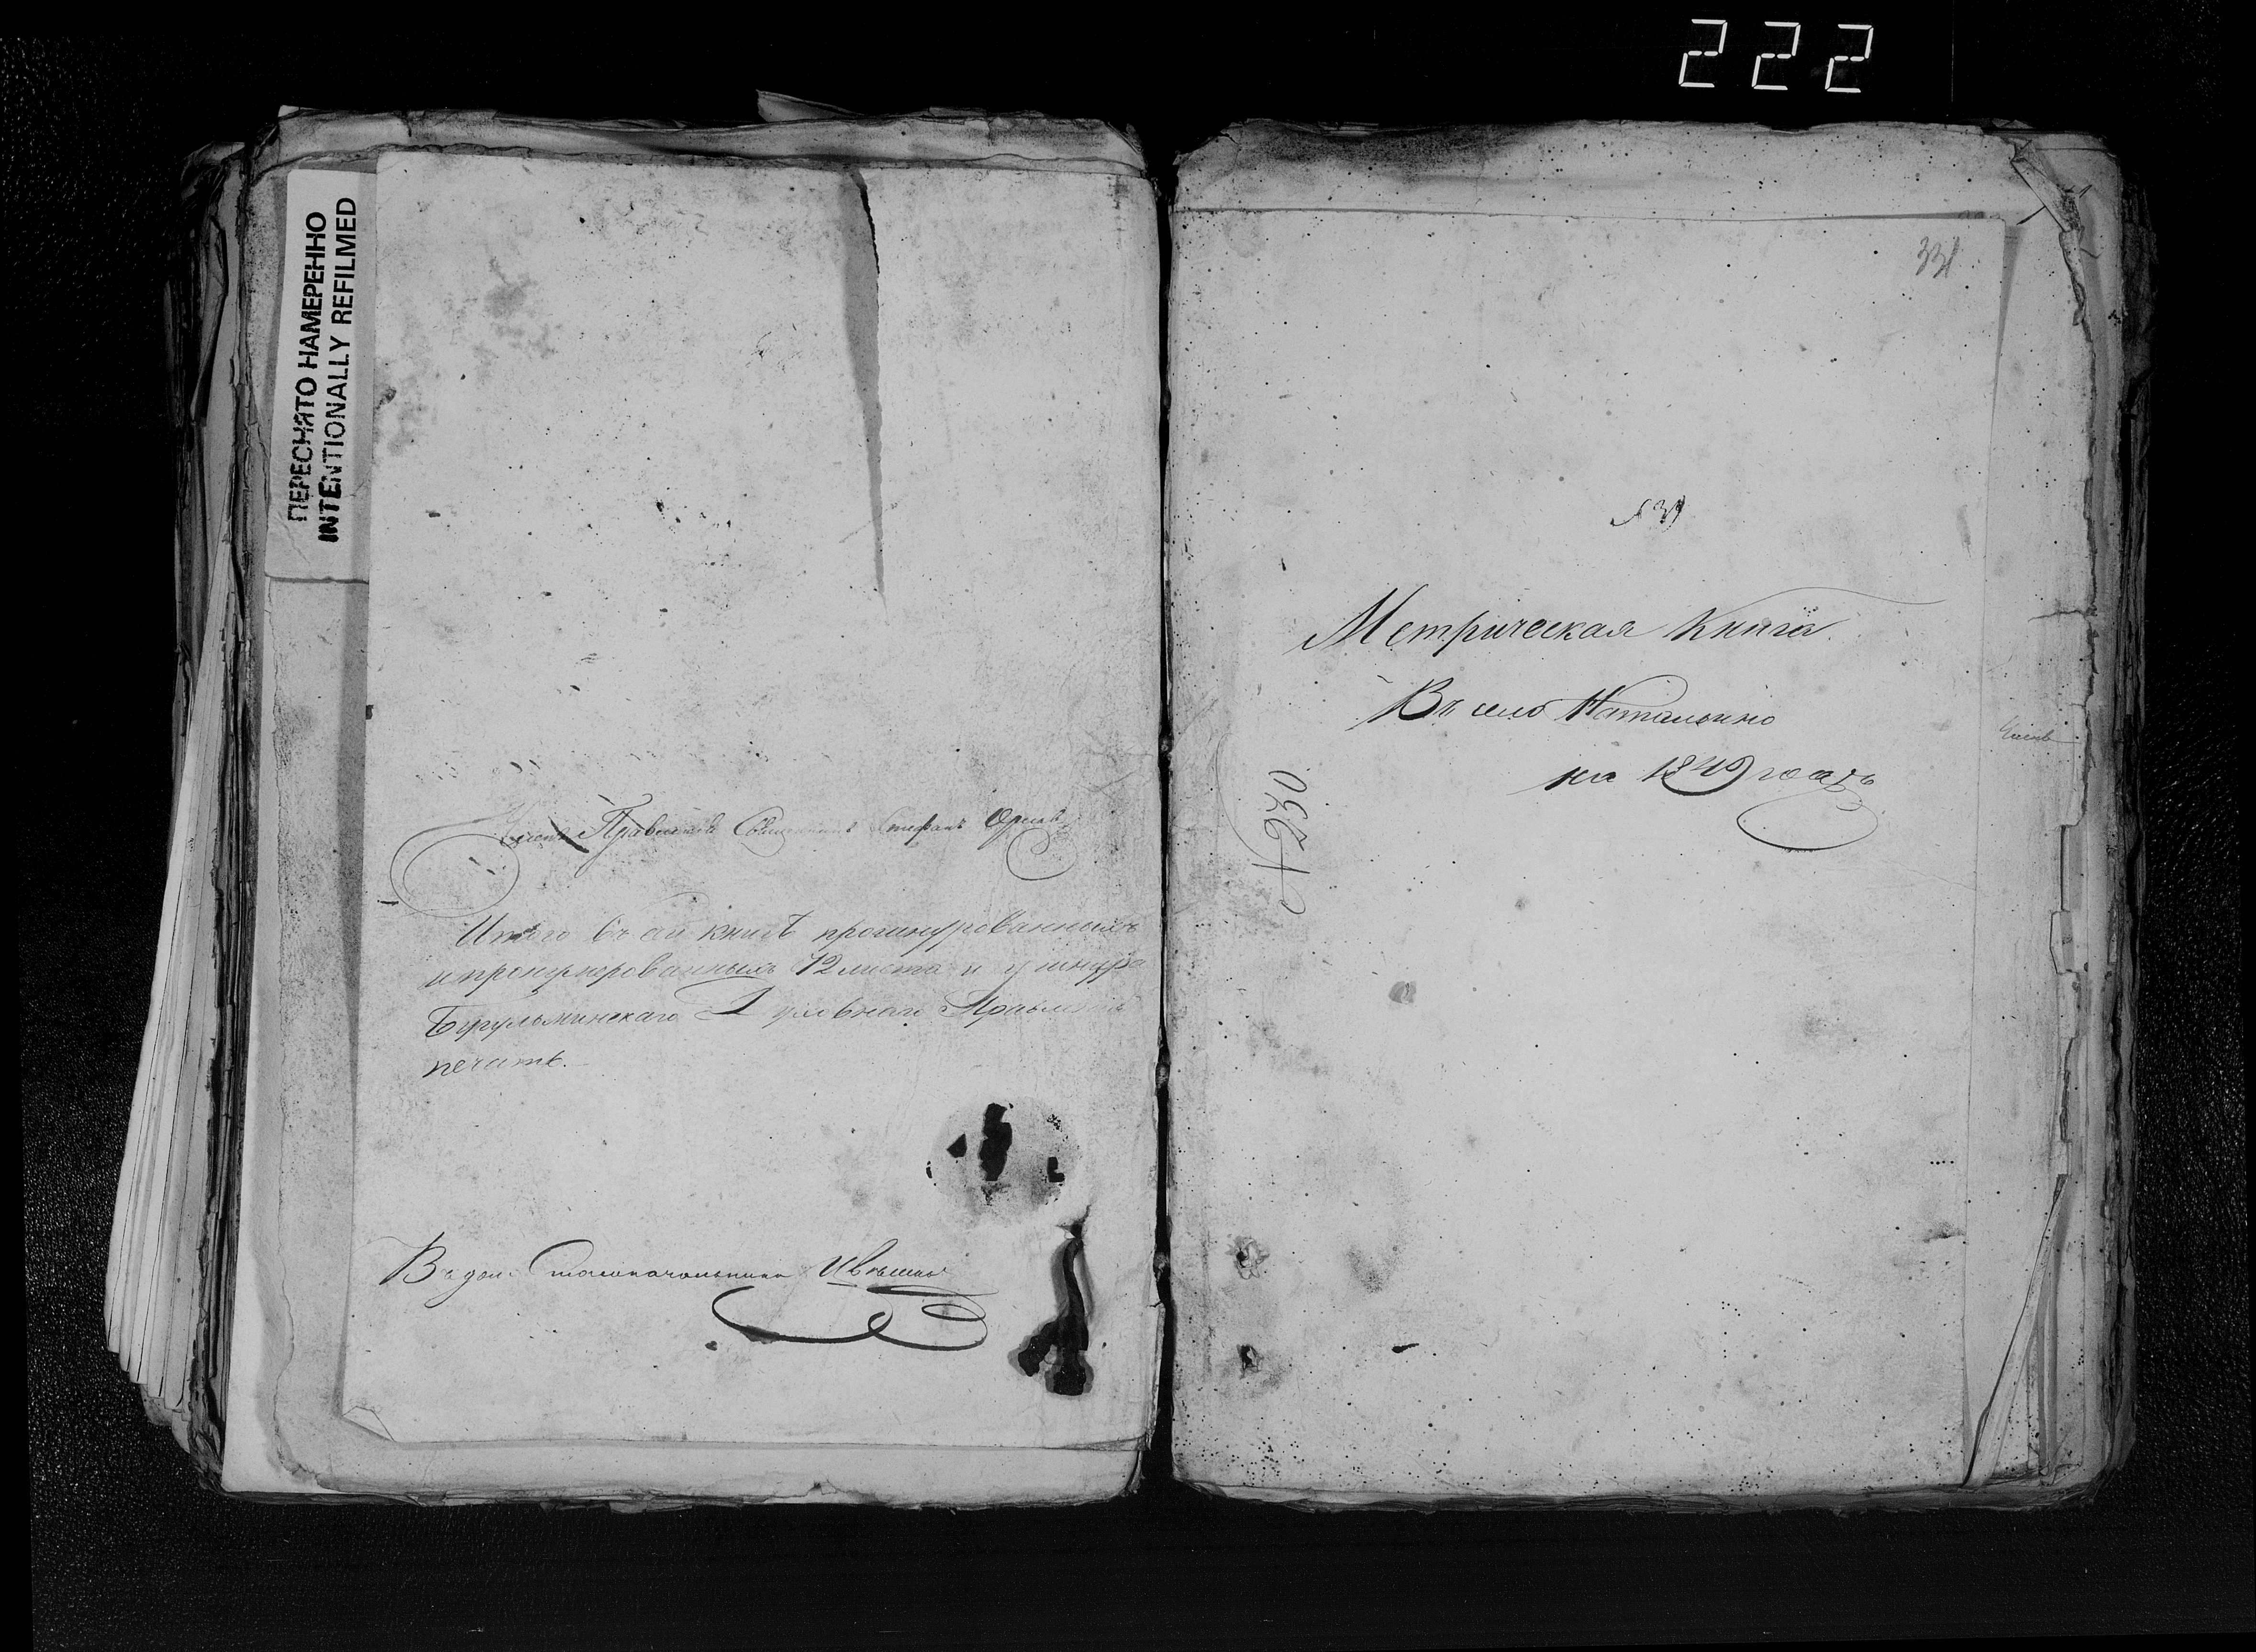 222
ПЕРЕСНЯТО НАМЕРЕННО
INTENTIONALLY REFILMED
Членъ Правленія Священникъ Стефанъ
Итого въ сей книгѣ прошнурованныхъ
и пронумерованныхъ 12 листа и у шнура
Бугульминскаго Духовнаго Правленія
печать.
Въ дол. Столоначальника
331
Метрическая книга
Въ село Наталькино
на 1849 годъ
№ 230